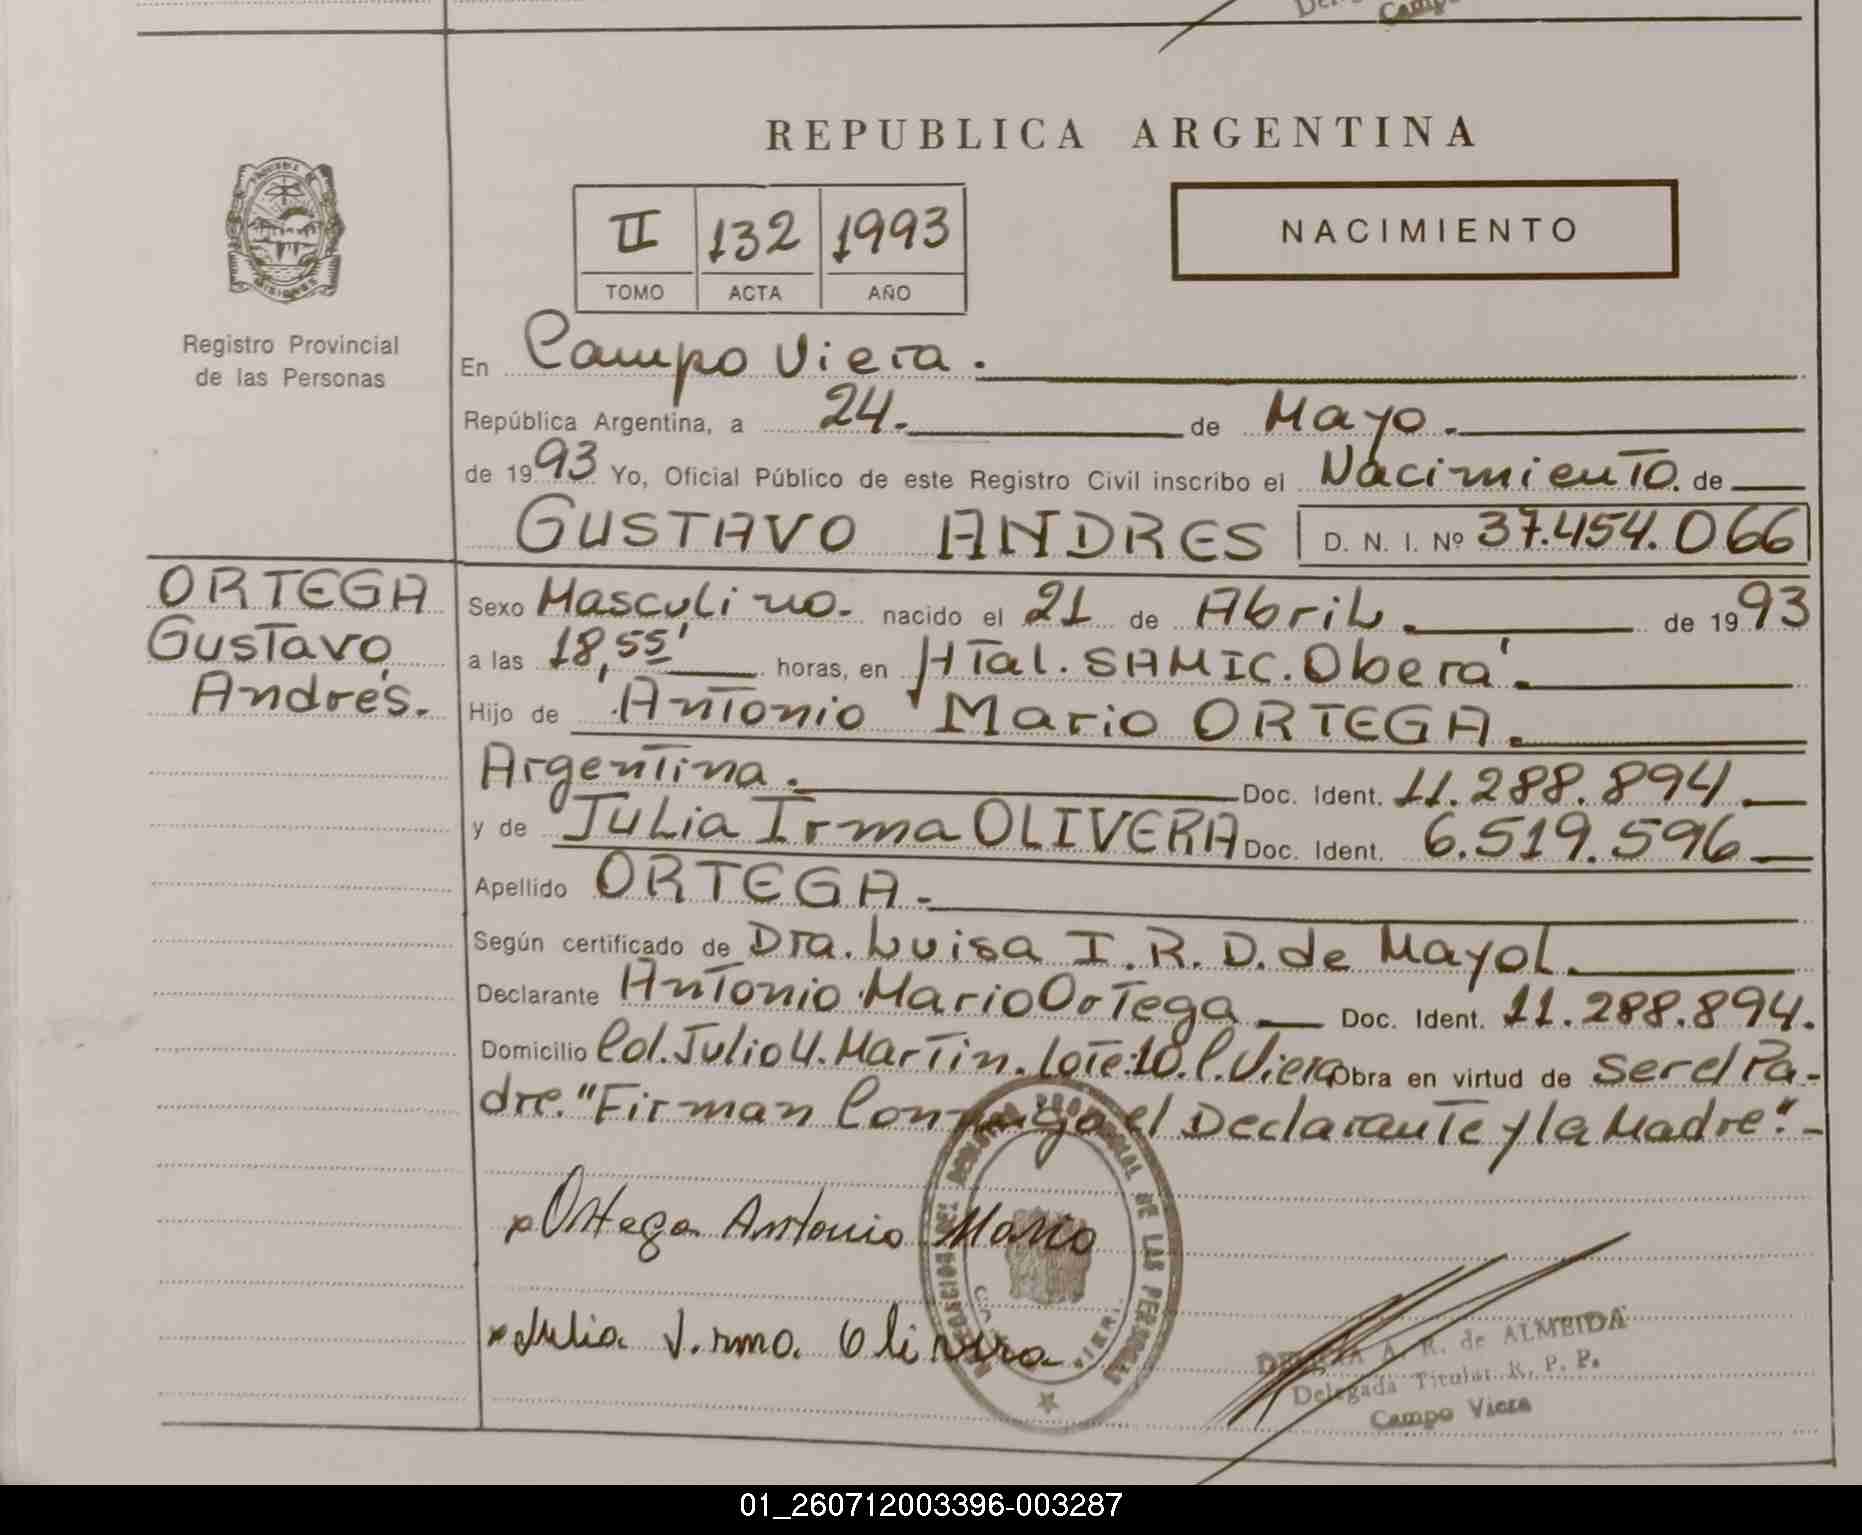 REPUBLICA ARGENTINA
II 132 1993
TOMO ACTA AÑO
NACIMIENTO
Registro Provincial
de las Personas
En Campo Viera.
República Argentina, a 24. de Mayo.
de 1993 Yo, Oficial Público de este Registro Civil inscribo el Nacimiento. de
GUSTAVO ANDRES D. N. I. Nº 37.454.066
ORTEGA
Gustavo
Andrés.
Sexo Masculino. nacido el 21 de Abril. de 1993
a las 18,55' horas, en HTal. SAMIC. Oberá.
Hijo de Antonio Mario ORTEGA.
Argentina. Doc. Ident. 11.288.894
y de Julia Irma OLIVERA Doc. Ident. 6.519.596
Apellido ORTEGA.
Según certificado de Dra. Luisa I.R.D. de Mayol.
Declarante Antonio Mario Ortega Doc. Ident. 11.288.894.
Domicilio Col. Julio U. Martin. Lote:10. C. Viera Obra en virtud de ser el Pa-
dre. "Firman Conmigo el Declarante y la Madre".-
Ortega Antonio Mario
Julia Irma Olivera
DE LAS PERSONAS
A. R. de ALMEIDA
Delegada Titular R. P. P.
Campo Viera
01_260712003396-003287